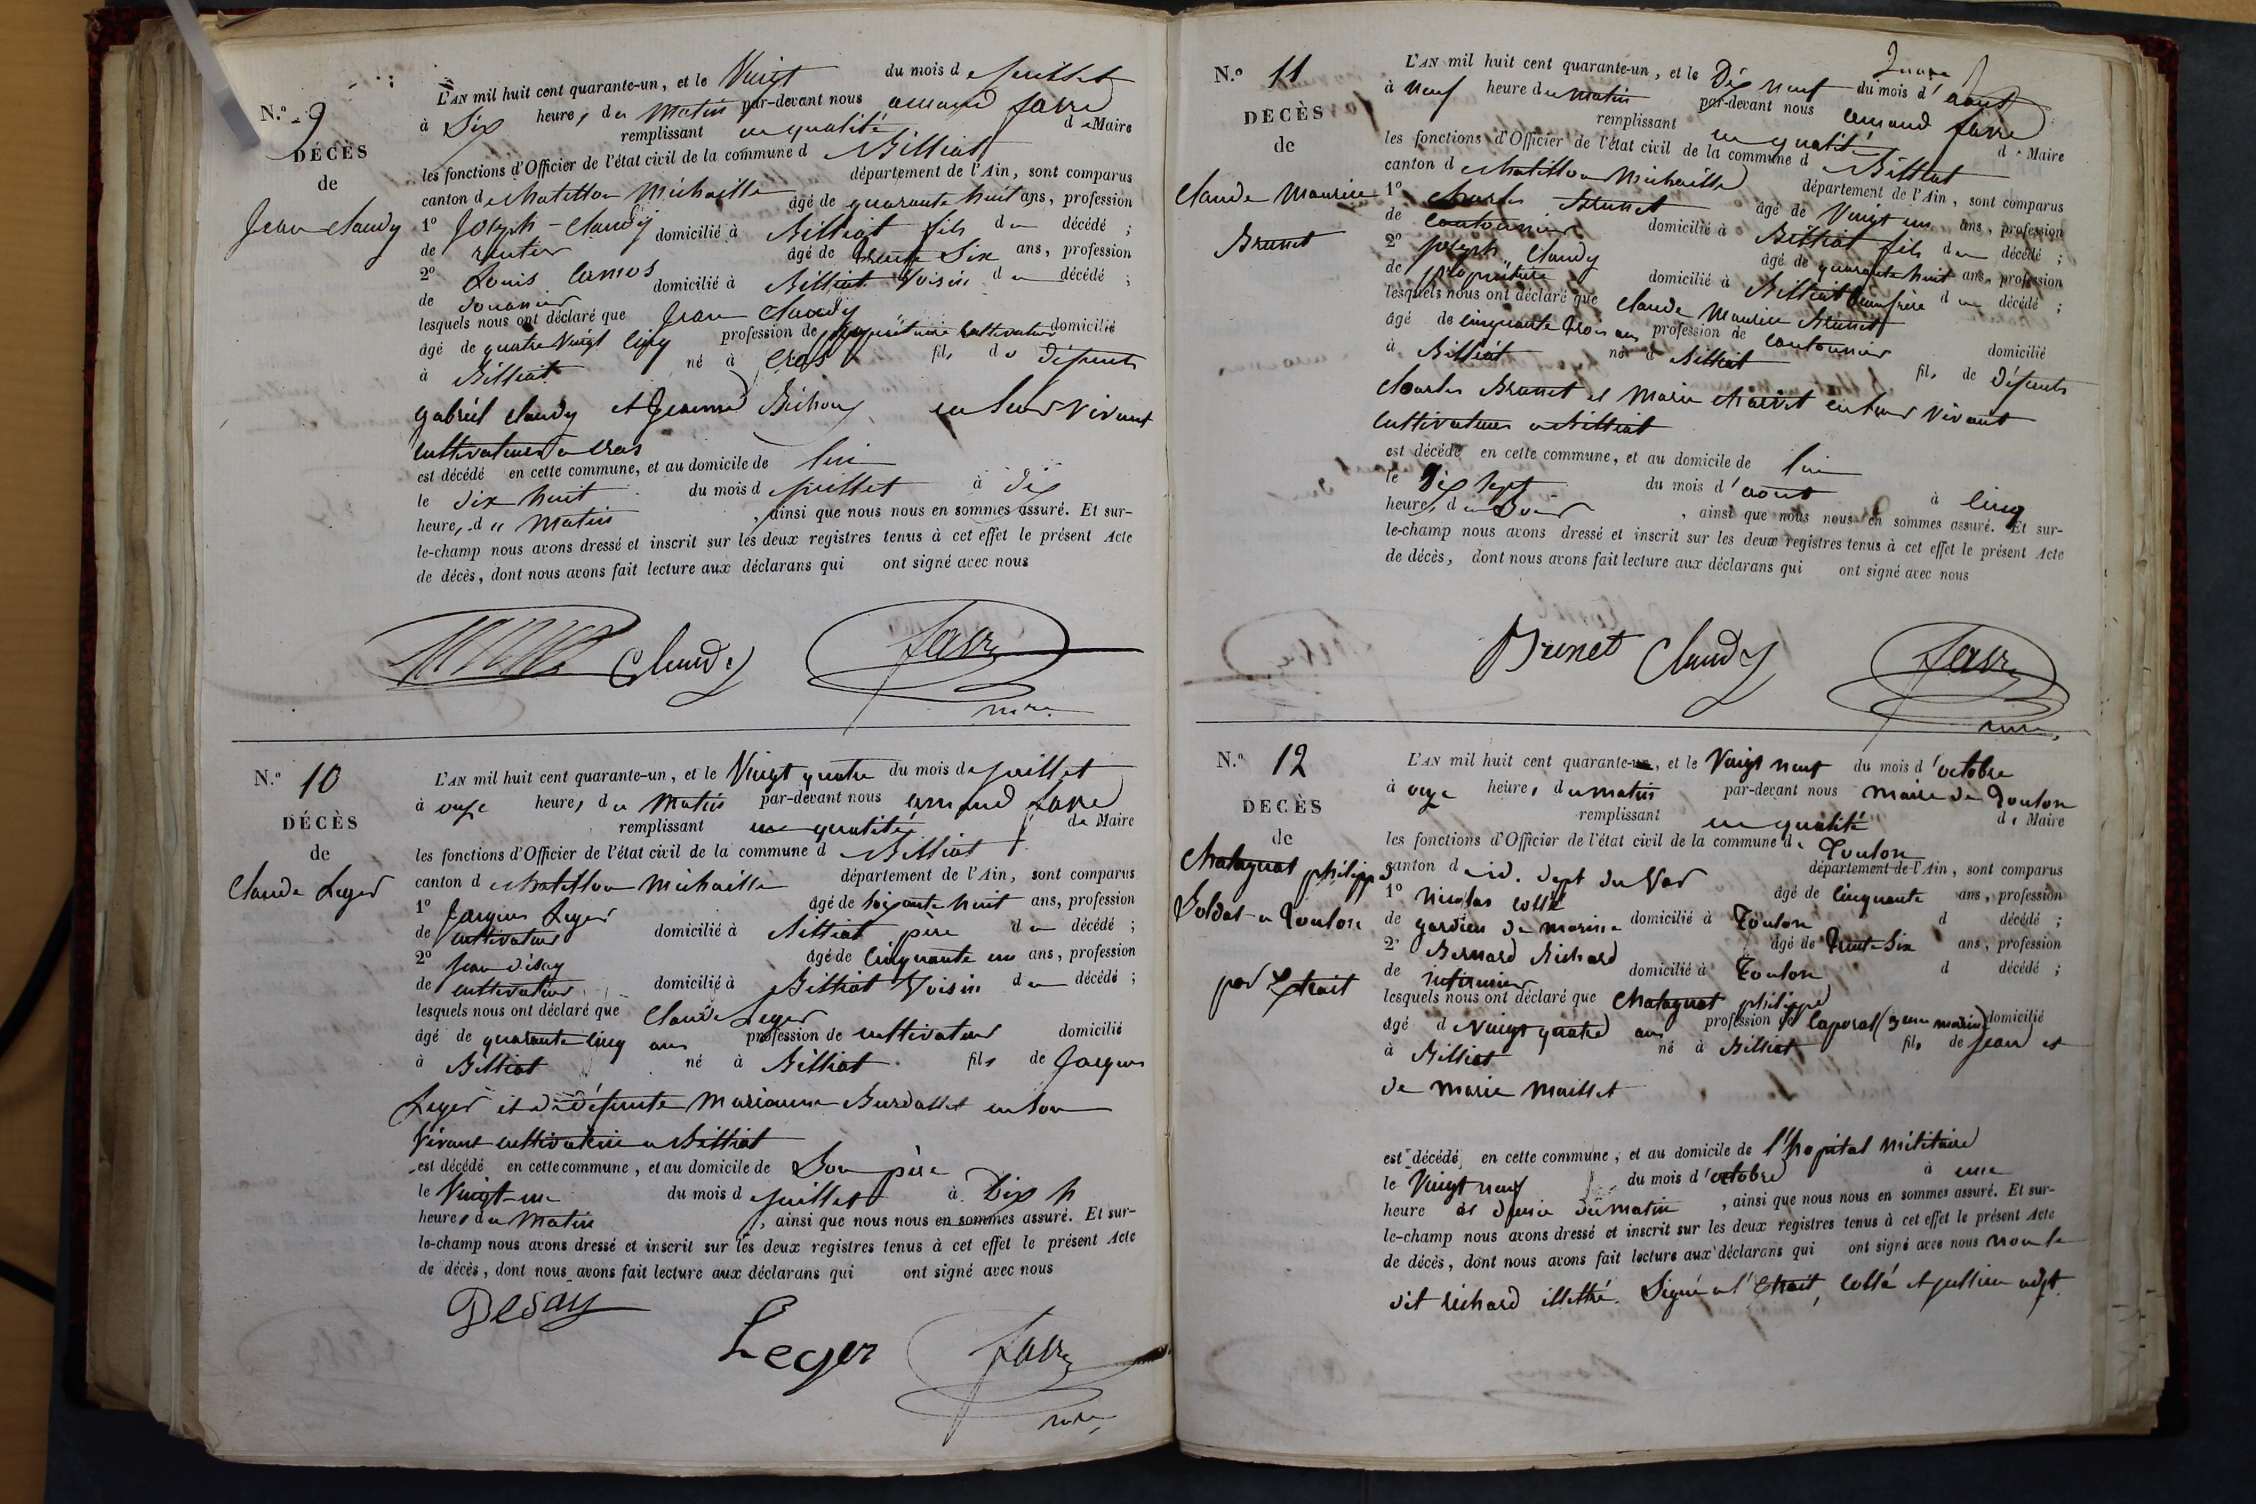 N.º 9
DÉCÈS
de
Jean Claudy
L'AN mil huit cent quarante-un, et le Vingt du mois de juillet
à Six heures du Matin par-devant nous armand favre
remplissant en qualité de Maire
les fonctions d'Officier de l'état civil de la commune d Billiat
canton de chatillon Michaille département de l'Ain, sont comparus
1º Joseph - Claudy âgé de quarante huit ans, profession
de rentier domicilié à Billiat fils du décédé ;
2º Louis Camos âgé de trente Six ans, profession
de Douanier domicilié à Billiat Voisin du décédé ;
lesquels nous ont déclaré que Jean Claudy
âgé de quatre Vingt Cinq profession de propriétaire Cultivateur domicilié
à Billiat né à Cras fils de Défunts
gabriel Claudy et Jeanne en leur vivant
Cultivateurs a Cras
est décédé en cette commune, et au domicile de lui
le dix huit du mois d juillet à dix
heures du Matin, ainsi que nous nous en sommes assuré. Et sur-
le-champ nous avons dressé et inscrit sur les deux registres tenus à cet effet le présent Acte
de décès, dont nous avons fait lecture aux déclarans qui ont signé avec nous
Claudy favre
maire
N.º 10
DÉCÈS
de
Claude Leger
L'AN mil huit cent quarante-un, et le Vingt quatre du mois de juillet
à onze heures du Matin par-devant nous armand favre
remplissant en qualité de Maire
les fonctions d'Officier de l'état civil de la commune d Billiat
canton de chatillon Michaille département de l'Ain, sont comparus
1º Jacques Leger âgé de soixante huit ans, profession
de cultivateur domicilié à Billiat père du décédé ;
2º Jean Désay âgé de Cinquante un ans, profession
de cultivateur domicilié à Billiat Voisin du décédé ;
lesquels nous ont déclaré que Claude Leger
âgé de quarante cinq ans profession de cultivateur domicilié
à Billiat né à Billiat fils de Jacques
Leger et de défunte Marianne Burdallet en son
Vivant cultivatrice a Billiat
est décédé en cette commune, et au domicile de Son père
le Vingt-un du mois d juillet à Dix h
heures du Matin, ainsi que nous nous en sommes assuré. Et sur-
le-champ nous avons dressé et inscrit sur les deux registres tenus à cet effet le présent Acte
de décès, dont nous avons fait lecture aux déclarans qui ont signé avec nous
Desay
Leger favre
maire
N.º 11
DÉCÈS
de
Claude Maurice
Brunet
L'AN mil huit cent quarante-un, et le Dix neuf du mois d'août
à neuf heure du matin par-devant nous armand favre
remplissant en qualité de Maire
les fonctions d'Officier de l'état civil de la commune d Billiat
canton d chatillon Michaille département de l'Ain, sont comparus
1º Charles Brunet âgé de Vingt un ans, profession
de cantonnier domicilié à Billiat fils du décédé ;
2º joseph Claudy âgé de quarante huit ans, profession
de propriétaire domicilié à Billiat beaufrère du décédé ;
lesquels nous ont déclaré que Claude Maurice Brunet
âgé de cinquante trois ans profession de cantonnier domicilié
à Billiat né à Billiat fils de Défunts
Charles Brunet et Marie charvet en leur vivant
Cultivateurs a Billiat
est décédé en cette commune, et au domicile de lui
le Dix Sept du mois d'août à cinq
heures du Soir, ainsi que nous nous en sommes assuré. Et sur-
le-champ nous avons dressé et inscrit sur les deux registres tenus à cet effet le présent Acte
de décès, dont nous avons fait lecture aux déclarans qui ont signé avec nous
Brunet Claudy favre
maire
N.º 12
DÉCÈS
de
Chatagnat philippe
Soldat a Toulon
par Extrait
L'AN mil huit cent quarante-un, et le Vingt neuf du mois d'octobre
à onze heures du matin par-devant nous maire de Toulon
remplissant en qualité de Maire
les fonctions d'Officier de l'état civil de la commune de Toulon
canton d id. dept du Var département de l'Ain, sont comparus
1º Nicolas collé âgé de Cinquante ans, profession
de gardien de marine domicilié à Toulon d décédé ;
2º Bernard Richard âgé de trente Six ans, profession
de infirmier domicilié à Toulon d décédé ;
lesquels nous ont déclaré que Chatagnat philippe
âgé d Vingt quatre ans profession de Caporal (3eme marine) domicilié
à Billiat né à Billiat fils de Jean et
de Marie Maillet
est décédé en cette commune, et au domicile de l'hopital militaire
le Vingt neuf du mois d'octobre à une
heure et demie du matin, ainsi que nous nous en sommes assuré. Et sur-
le-champ nous avons dressé et inscrit sur les deux registres tenus à cet effet le présent Acte
de décès, dont nous avons fait lecture aux déclarans qui ont signé avec nous non le
dit Richard illettré. Signé a l'Extrait, Collé et jullien adjt.